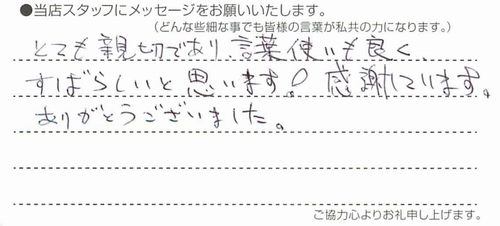 ●当店スタッフにメッセージをお願いいたします。
（どんな些細な事でも皆様の言葉が私共の力になります。）
とても親切であり、言葉使いも良く、
すばらしいと思います！感謝しています。
ありがとうございました。
ご協力心よりお礼申し上げます。